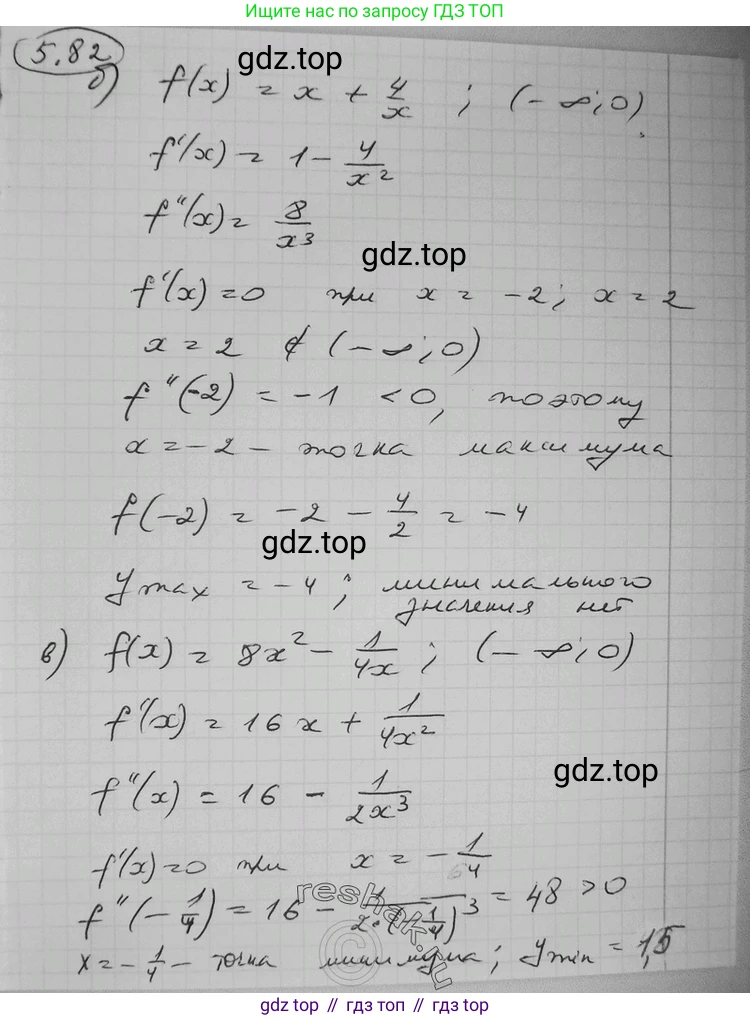 Ищите нас по запросу ГДЗ ТОП
5.82
б) f(x) = x + 4/x ; (-∞; 0)
gdz.top
f'(x) = 1 - 4/x²
f''(x) = 8/x³
gdz.top
f'(x) = 0 при x = -2; x = 2
x = 2 ∉ (-∞; 0)
f''(-2) = -1 < 0, поэтому
x = -2 - точка максимума
f(-2) = -2 - 4/2 = -4
gdz.top
y max = -4; минимального
значения нет
в) f(x) = 8x² - 1/4x ; (-∞; 0)
f'(x) = 16x + 1/4x²
gdz.top
f''(x) = 16 - 1/2x³
f'(x) = 0 при x = -1/4
f''(-1/4) = 16 - 1/2·(-1/4)³ = 48 > 0
reshak.ru
x = -1/4 - точка минимума; y min = 1,5
gdz.top // гдз.топ // gdz.top